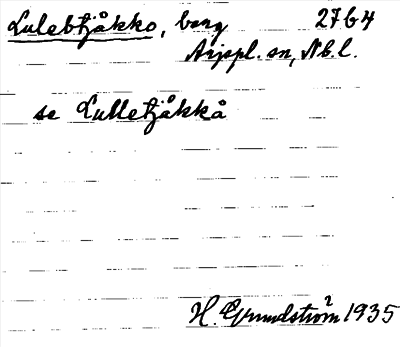 Lulebtjåkko, berg 27 b 4
Arjepl. sn, Nb. l.
se Lulletjåkkå
H. Grundström 1935